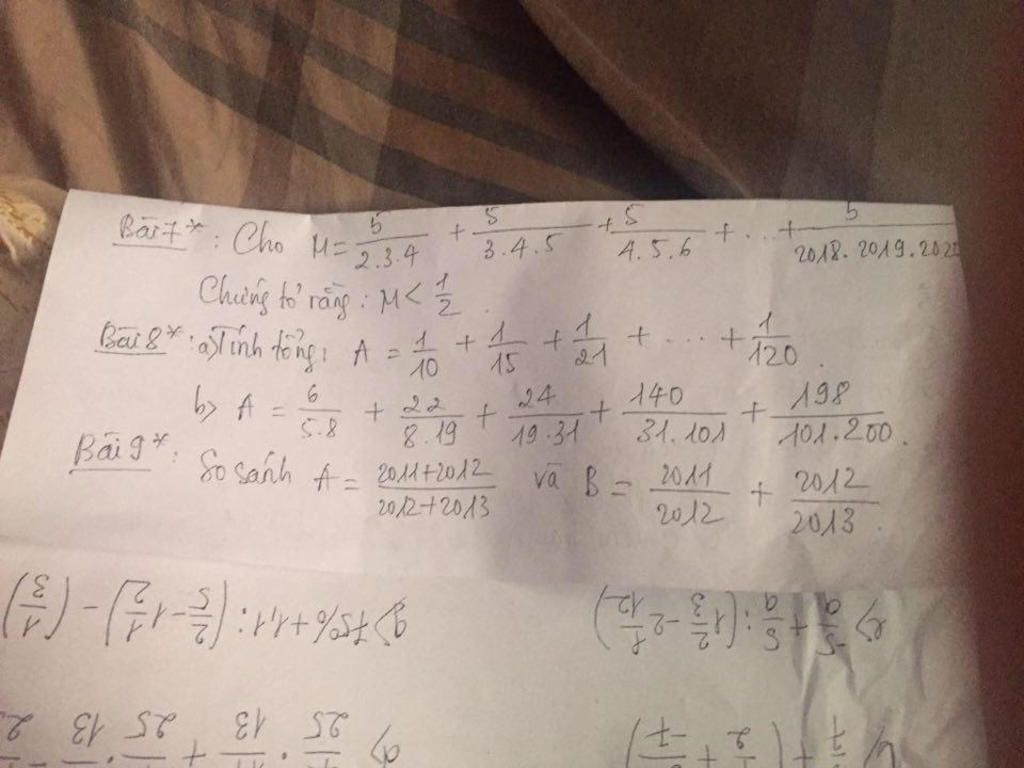 Bài 7*: Cho M = 5/2.3.4 + 5/3.4.5 + 5/4.5.6 + ... + 5/2018.2019.202
Chứng tỏ rằng: M < 1/2.
Bài 8*: a) Tính tổng: A = 1/10 + 1/15 + 1/21 + ... + 1/120.
b) A = 6/5.8 + 22/8.19 + 24/19.31 + 140/31.101 + 198/101.200.
Bài 9*: So sánh A = 2011+2012/2012+2013 và B = 2011/2012 + 2012/2013.
g) 75% + 1,1 : (2/5 - 1 1/2) - (1/3)